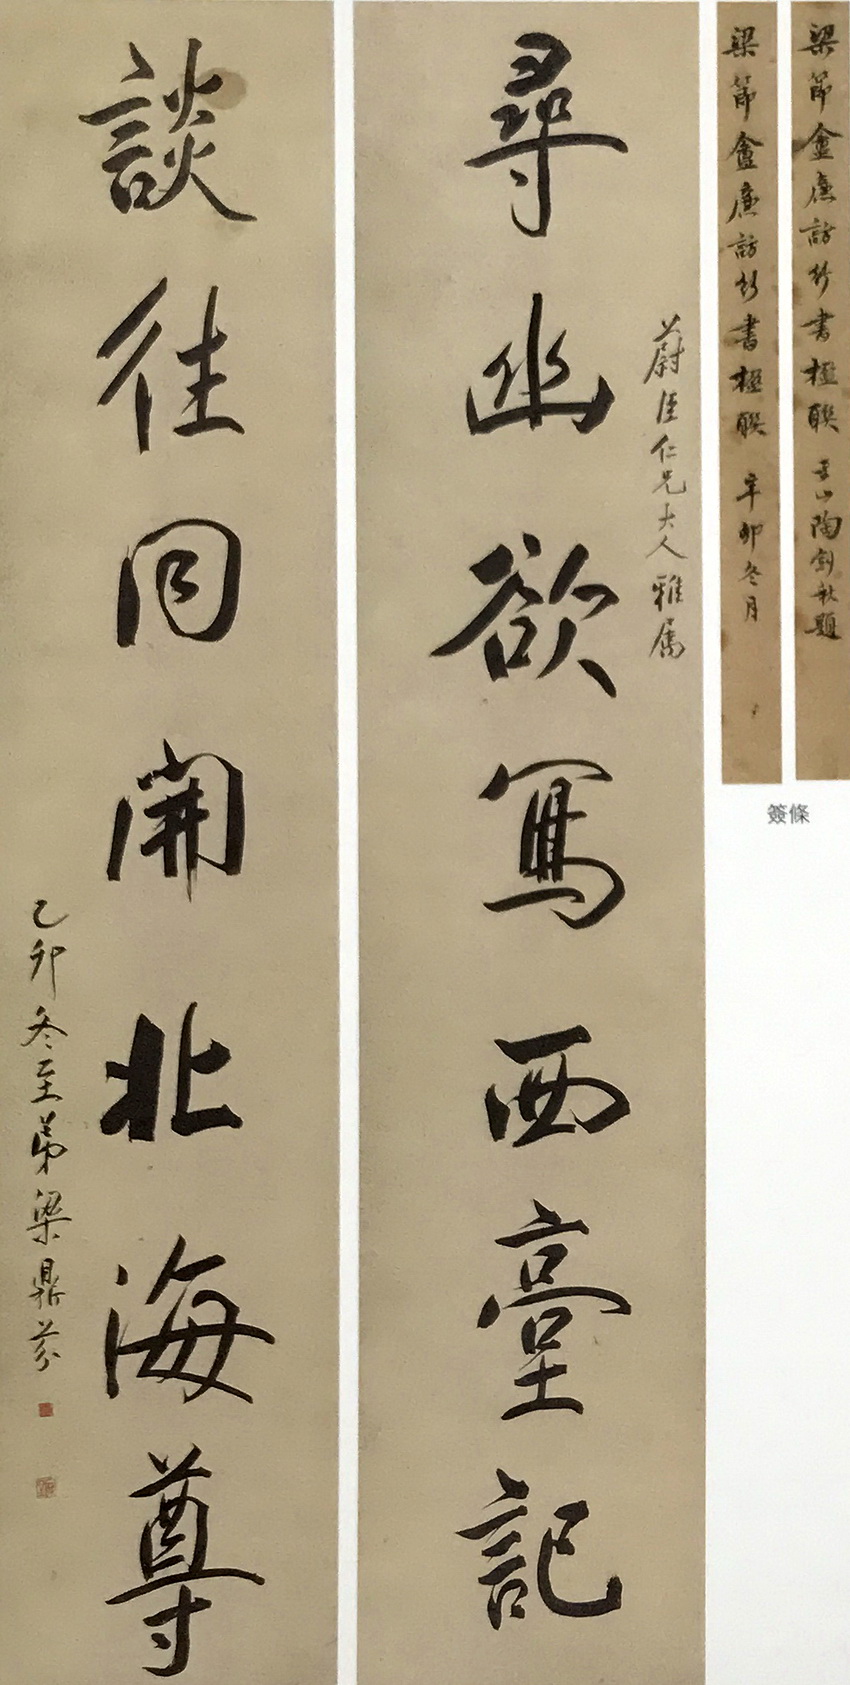 梁節盦廉訪行書楹聯 雪山陶劍秋題
梁節盦廉訪行書楹聯 辛卯冬月
簽條
蔚臣仁兄大人雅属
尋幽欲寫西臺記
談往同開北海尊
乙卯冬至弟梁鼎芬